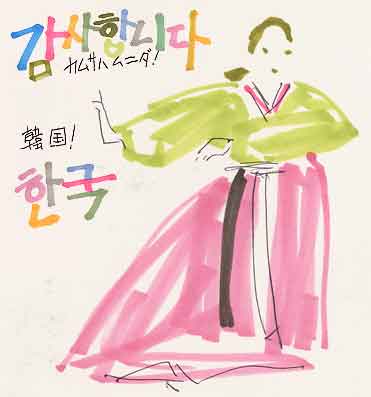 감사합니다
カムサハムニダ!
韓国!
한국